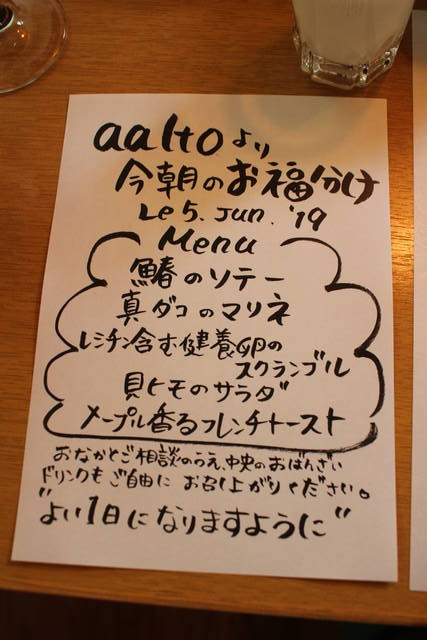 aaltoより
今朝のお福分け
Le 5. Jun. '19
Menu
鰆のソテー
真ダコのマリネ
レシチン含む健養卵の
スクランブル
貝ヒモのサラダ
メープル香るフレンチトースト
おなかとご相談のうえ、中央のおばんざい
ドリンクもご自由に お召し上がりください。
"よい1日になりますように"